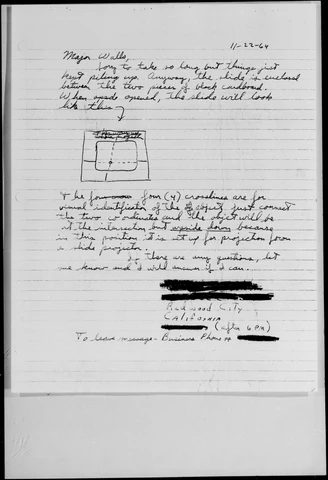 11-22-64
Major Walls,
Sorry to take so long but things just
kept piling up. Anyway, the slide is enclosed
between the two pieces of black cardboard.
When made opened, the slide will look
like this
The four (4) crosslines are for
visual identification of the object just connect
the two co ordinates and the object will be
at the intersection but upside down because
in this position it is set up for projection form
a slide projector.
If there are any questions, let
me know and I will answer if I can.
Redwood City
California
(after 6 PM)
To leave message - Business Phone #